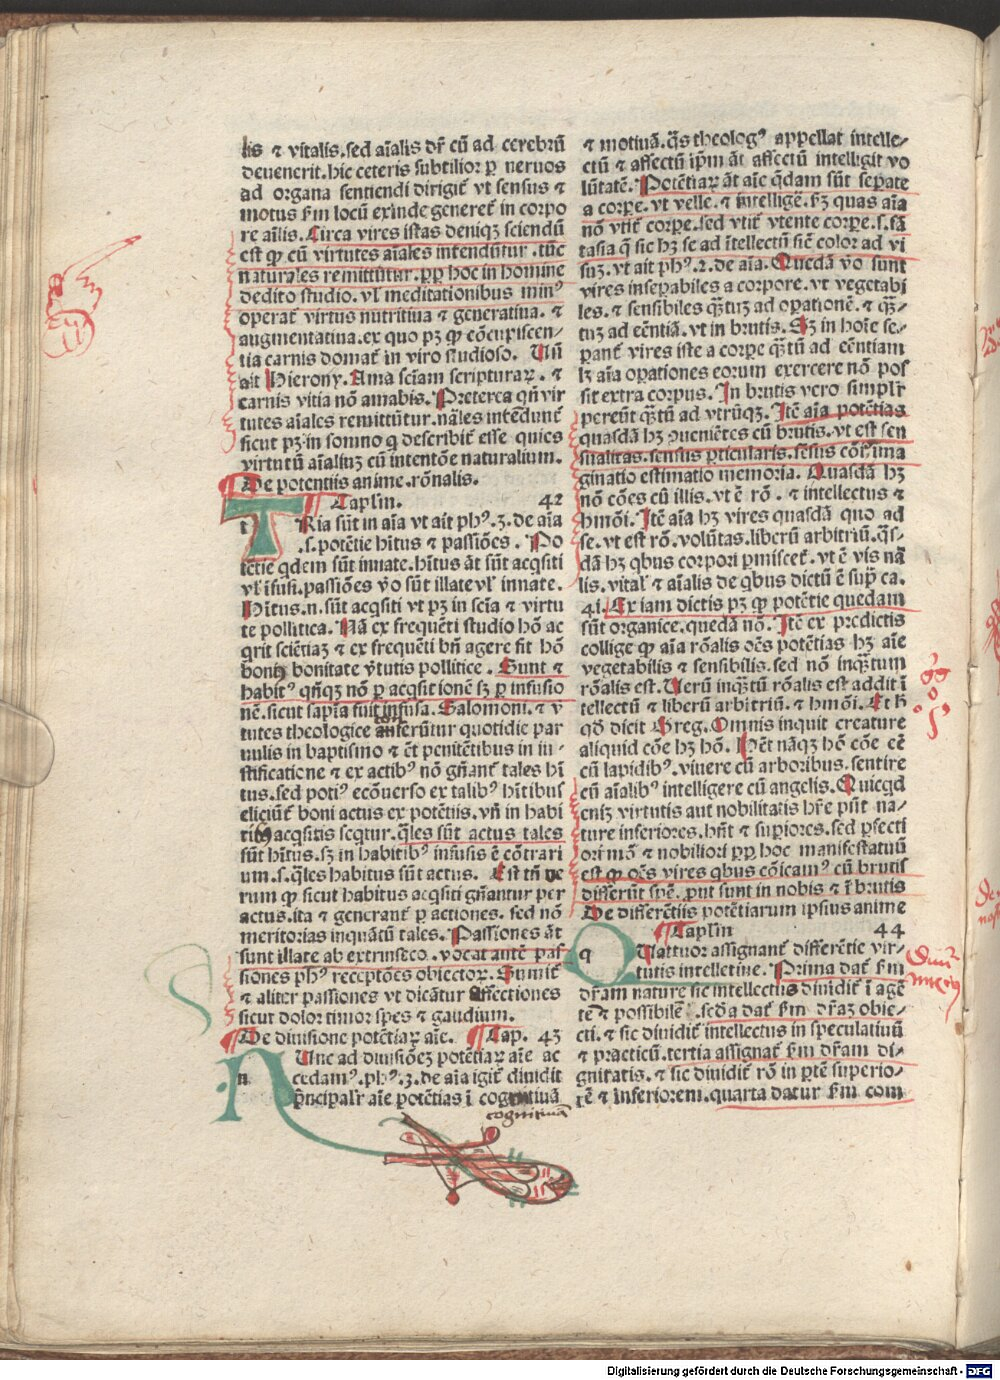 lis ⁊ vitalis.sed aĩalis dr̃ cũ ad cerebrũ
deuenerit.hic ceteris subtilior ꝑ neruos
ad organa sentiendi dirigit᷑ vt sensus ⁊
motus fm locũ exinde generet᷑ in corpo
re aĩlis. Circa vires istas deniqꝫ sciendũ
est ꝙ cũ virtutes aĩales intendũtur.tũc
naturales remittũtur.ꝓp hoc in homine
dedito studio.vl̓ meditationibus minꝰ
operat᷑ virtus nutritiua ⁊ generatiua.⁊
augmentatiua.ex quo pꝫ ꝙ cõcupiscen-
tia carnis domat᷑ in viro studioso. Vñ
ait Hierony. Ama sciam scripturaꝝ.⁊
carnis vitia nõ amabis. Preterea qñ vir
tutes aĩales remittũtur.nãles intẽdunt᷑
sicut pꝫ in somno q̃ describit᷑ esse quies
virtutũ aĩaliuꝫ cũ intentõe naturalium.
De potentijs anime.rõnalis.
Caplm. 42
t Ria sũt in aĩa vt ait phꝰ.3.de aĩa
.s.potẽtie hĩtus ⁊ passiões. Po
tẽtie qdem sũt innate.hĩtus āt sũt acqsiti
vl̓ ĩfusi.passiões v̓o sũt illate vl̓ innate.
Hĩtus.n.sũt acqsiti vt pꝫ in scĩa ⁊ virtu
te pollitica. Nã ex frequẽti studio hõ ac
qrit sciẽtiaꝫ ⁊ ex frequẽti bñ agere fit hõ
bonꝰ bonitate v̓tutis pollitice. Sunt ⁊
habitꝰ qñqꝫ nõ ꝑ acqsitionẽ sꝫ ꝑ infusio
nẽ.sicut sapĩa fuit infusa. Salomoni.⁊ v̓
tutes theologice conferũtur quotidie par
uulis in baptismo ⁊ ẽt penitẽtibus in iu-
stificatione ⁊ ex actibꝰ nõ gñant᷑ tales hĩ
tus.sed potiꝰ ecõuerso ex talibꝰ hĩtibus
eliciũt᷑ boni actus ex potẽtijs.vñ in habi
tibꝰ acqsitis seqtur.q̃les sũt actus tales
sũt hĩtus.sꝫ in habitibꝰ infusis ẽ cõtrari
um.s.q̃les habitus sũt actus. Est tñ ve
rum ꝙ sicut habitus acqsiti gñantur per
actus.ita ⁊ generant᷑ ꝑ actiones. sed nõ
meritorias inquãtũ tales. Passiones āt
sunt illate ab extrinseco.vocat autẽ pas
siones phꝰ receptões obiectoꝝ. Sumit᷑
⁊ aliter passiones vt dicãtur affectiones
sicut dolor timor spes ⁊ gaudium.
De diuisione potẽtiaꝝ aĩe. Cap. 43
n Unc ad diuisiõeꝫ potẽtiaꝝ aĩe ac
cedamꝰ.phꝰ.3.de aĩa igit᷑ diuidit
p̃ncipalr̃ aĩe potẽtias ĩ cognitiuã
cognitiuã
⁊ motiuã.q̃s theologꝰ appellat intelle-
ctũ ⁊ affectũ ip̃m āt affectũ intelligit vo
lũtatẽ. Potẽtiaꝝ āt aĩe q̃dam sũt seꝑate
a corꝑe.vt velle.⁊ intelligẽ.fꝫ quas aĩa
nõ vtit᷑ corꝑe.sed vtit᷑ vtente corꝑe.s.fã
tasia q̃ sic hꝫ se ad ĩtellectũ sic̃ color ad vi
suꝫ.vt ait phꝰ.2.de aĩa. Quedã v̓o sunt
vires inseꝑabiles a corpore.vt vegetabi
les.⁊ sensibiles q̃ꝫtuꝫ ad oꝑationẽ.⁊ q̃ꝫ-
tuꝫ ad eẽntiã.vt in brutis. Sꝫ in hoĩe se-
ꝑant᷑ vires iste a corꝑe q̃ꝫtũ ad eẽntiam
lꝫ aĩa oꝑationes eorum exercere nõ pos
sit extra corpus. In brutis vero simplr̃
pereũt q̃ꝫtũ ad vtrũqꝫ. Itẽ aĩa potẽtias
quasdã hꝫ ꝯueniẽtes cũ brutis.vt est sen
sualitas.sensus ꝑticularis.sẽsus cõis.ima
ginatio estimatio memoria. Quasdã hꝫ
nõ cões cũ illis.vt ẽ rõ.⁊ intellectus ⁊
hmõi. Itẽ aĩa hꝫ vires quasdã quo ad
se.vt est rõ.volũtas.liberũ arbitriũ.q̃s-
dã hꝫ qbus corpori ꝑmiscet᷑.vt ẽ vis nã
lis.vital̓ ⁊ aĩalis de qbus dictũ ẽ sup̃ ca.
41. Ex iam dictis pꝫ ꝙ potẽtie quedam
sũt organice.quedã nõ. Itẽ ex predictis
collige ꝙ aĩa rõalis oẽs potẽtias hꝫ aĩe
vegetabilis ⁊ sensibilis.sed nõ inqꝫtum
rõalis est. Verũ inqꝫtũ rõalis est addit ĩ
tellectũ ⁊ liberũ arbitriũ.⁊ hmõi. Et h̓
qd̓ dicit Greg. Omnis inquit creature
aliquid cõe hꝫ hõ. Hẽt nãqꝫ hõ cõe eẽ
cũ lapidibꝰ.viuere cũ arboribus.sentire
cũ aĩalibꝰ intelligere cũ angelis. Quicqd
eniꝫ virtutis aut nobilitatis hr̃e pñt na-
ture inferiores.hñt ⁊ suꝑiores.sed ꝑfecti
ori mõ ⁊ nobiliori ꝓp hoc manifestatuũ
est ꝙ oẽs vires qbus cõicamꝰ cũ brutis
differũt spẽ.ꝓut sunt in nobis ⁊ ĩ brutis
De differẽtijs potẽtiarum ipsius anime
Caplm 44
q Uattuor assignant᷑ differẽtie vir-
tutis intelletiue. Prima dat᷑ fm
dr̃am nature sic intellectus diuidit᷑ ĩ agẽ
tẽ ⁊ possibilẽ. secd̓a dat᷑ fm dr̃aꝫ obie-
cti.⁊ sic diuidit᷑ intellectus in speculatiuũ
⁊ practicũ.tertia assignat᷑ fm dr̃am di-
gnitatis.⁊ sic diuidit᷑ rõ in ꝑtẽ superio-
rẽ ⁊ inferiorem.quarta datur fm com
Digitalisierung gefördert durch die Deutsche Forschungsgemeinschaft - DFG